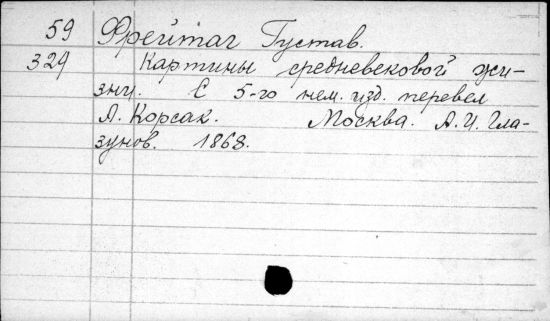 59 Фрейтаг Густав.
329 Картины средневековой жи-
зни. С 5-го нем. изд. перевел
А. Корсак. Москва. А.И. Гла-
зунов. 1868.